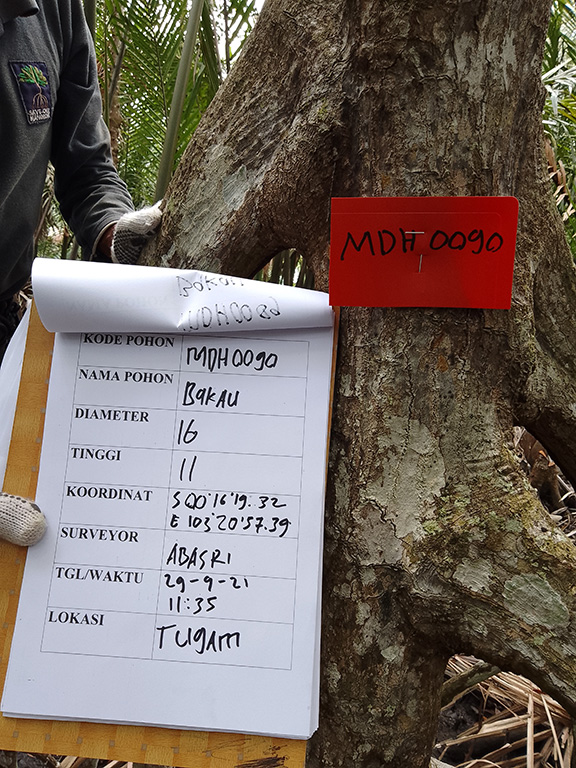 SAVE OUR
MANGROVE
MDH 0090
KODE POHON MDH0090
NAMA POHON BAKAU
DIAMETER 16
TINGGI 11
KOORDINAT S 00°16'19.32
E 103°20'57.39
SURVEYOR ABASRI
TGL/WAKTU 29-9-21
11:35
LOKASI TUGAM